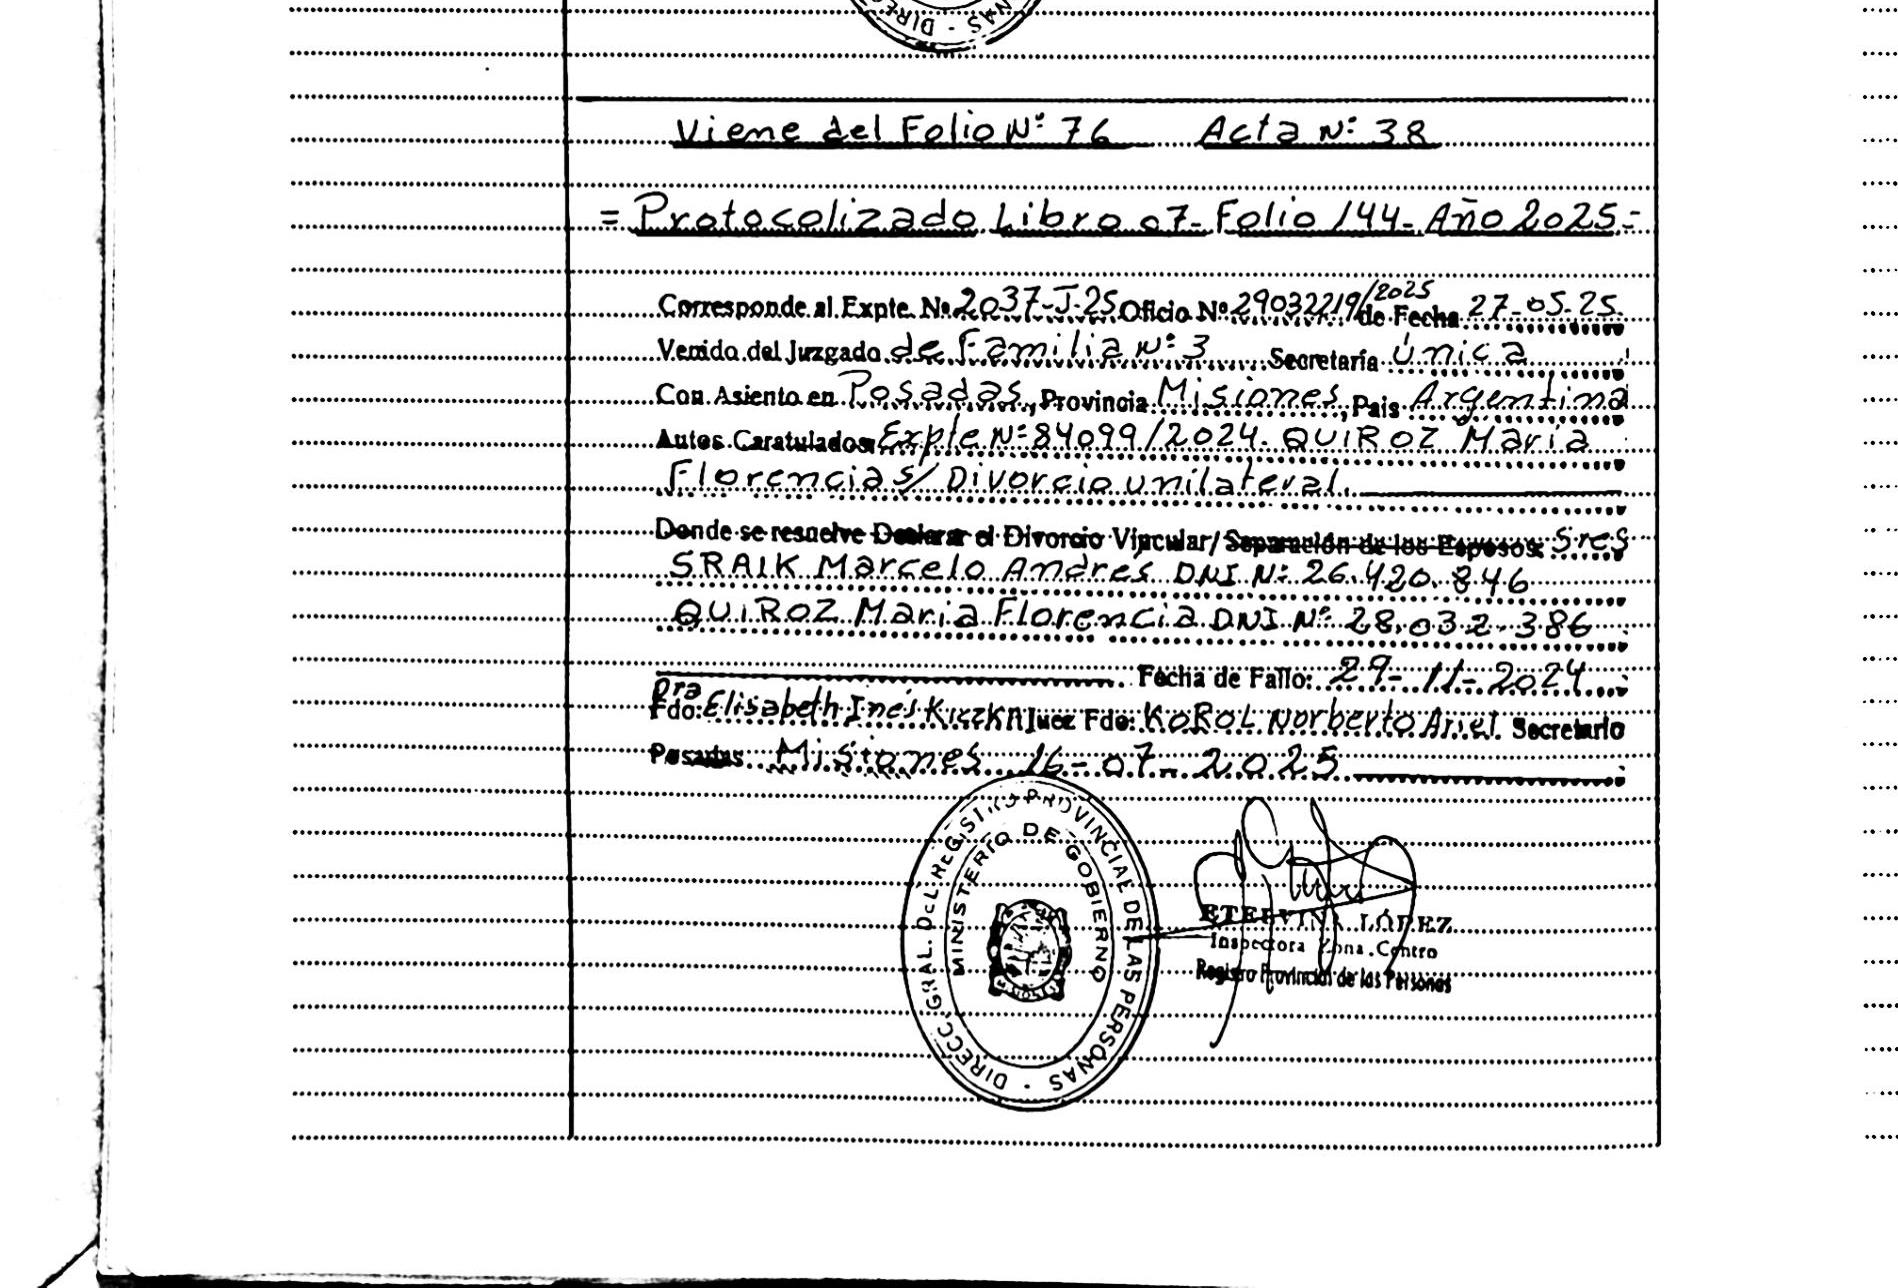 DIREC - NAS
Viene del Folio N° 76 Acta N° 38
= Protocolizado Libro 07- Folio 144- Año 2025.-
Corresponde al Expte. Nº 2037-J-25 Oficio Nº 29032219/2025 de Fecha 27-05-25
Venido del Juzgado de Familia N° 3 Secretaría Única
Con Asiento en Posadas, Provincia Misiones, Pais Argentina
Autos Caratulados: Expte N° 84099/2024. QUIROZ María
Florencia s/ Divorcio unilateral.
Donde se resuelve Declarar el Divorcio Vincular/Separación de los Esposos: Sres
SRAIK Marcelo Andrés DNI N° 26.420.846
QUIROZ María Florencia DNI N° 28.032.386
Fecha de Fallo: 29-11-2024
Fdo: Dra Elisabeth Inés Kiczka Juez Fdo: KOROL Norberto Ariel Secretario
Posadas Misiones 16-07-2025
DIRECC. GRAL. DEL REGISTRO PROVINCIAL DE LAS PERSONAS -
MINISTERIO DE GOBIERNO
ETELVINA LÓPEZ
Inspectora Zona Centro
Registro Provincial de las Personas